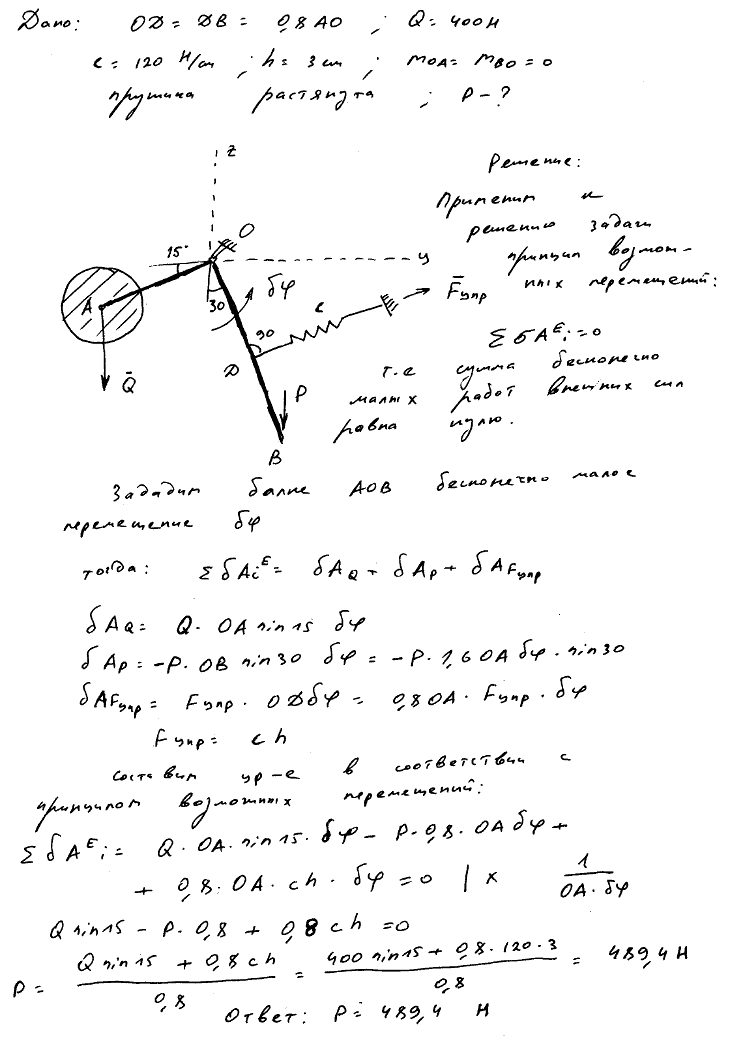 Дано: OD = DB = 0,8 AO ; Q = 400H
c = 120 H/см ; h = 3 см ; mOA = mBO = 0
пружина растянута ; P - ?
Решение:
Применим к
решению задачи
принцип возмож-
ных перемещений:
Σ δA^E i = 0
т.е сумма бесконечно
малых работ внешних сил
равна нулю.
z
O
y
15°
A
Q̄
30
δφ
90
c
F̄упр
D
P
B
Зададим балке AOB бесконечно малое
перемещение δφ
тогда: Σ δAi^E = δAQ + δAp + δAFупр
δAQ = Q · OA sin 15 δφ
δAp = -P · OB sin 30 δφ = -P · 1,6 OA δφ · sin 30
δAFупр = Fупр · OD δφ = 0,8 OA · Fупр · δφ
Fупр = ch
составим ур-е в соответствии с
принципом возможных перемещений:
Σ δA^E i = Q · OA · sin 15 · δφ - P · 0,8 · OA δφ +
+ 0,8 · OA · ch · δφ = 0 | × 1/(OA · δφ)
Q sin 15 - P · 0,8 + 0,8 ch = 0
P = (Q sin 15 + 0,8 ch)/0,8 = (400 sin 15 + 0,8 · 120 · 3)/0,8 = 489,4 H
Ответ: P = 489,4 H